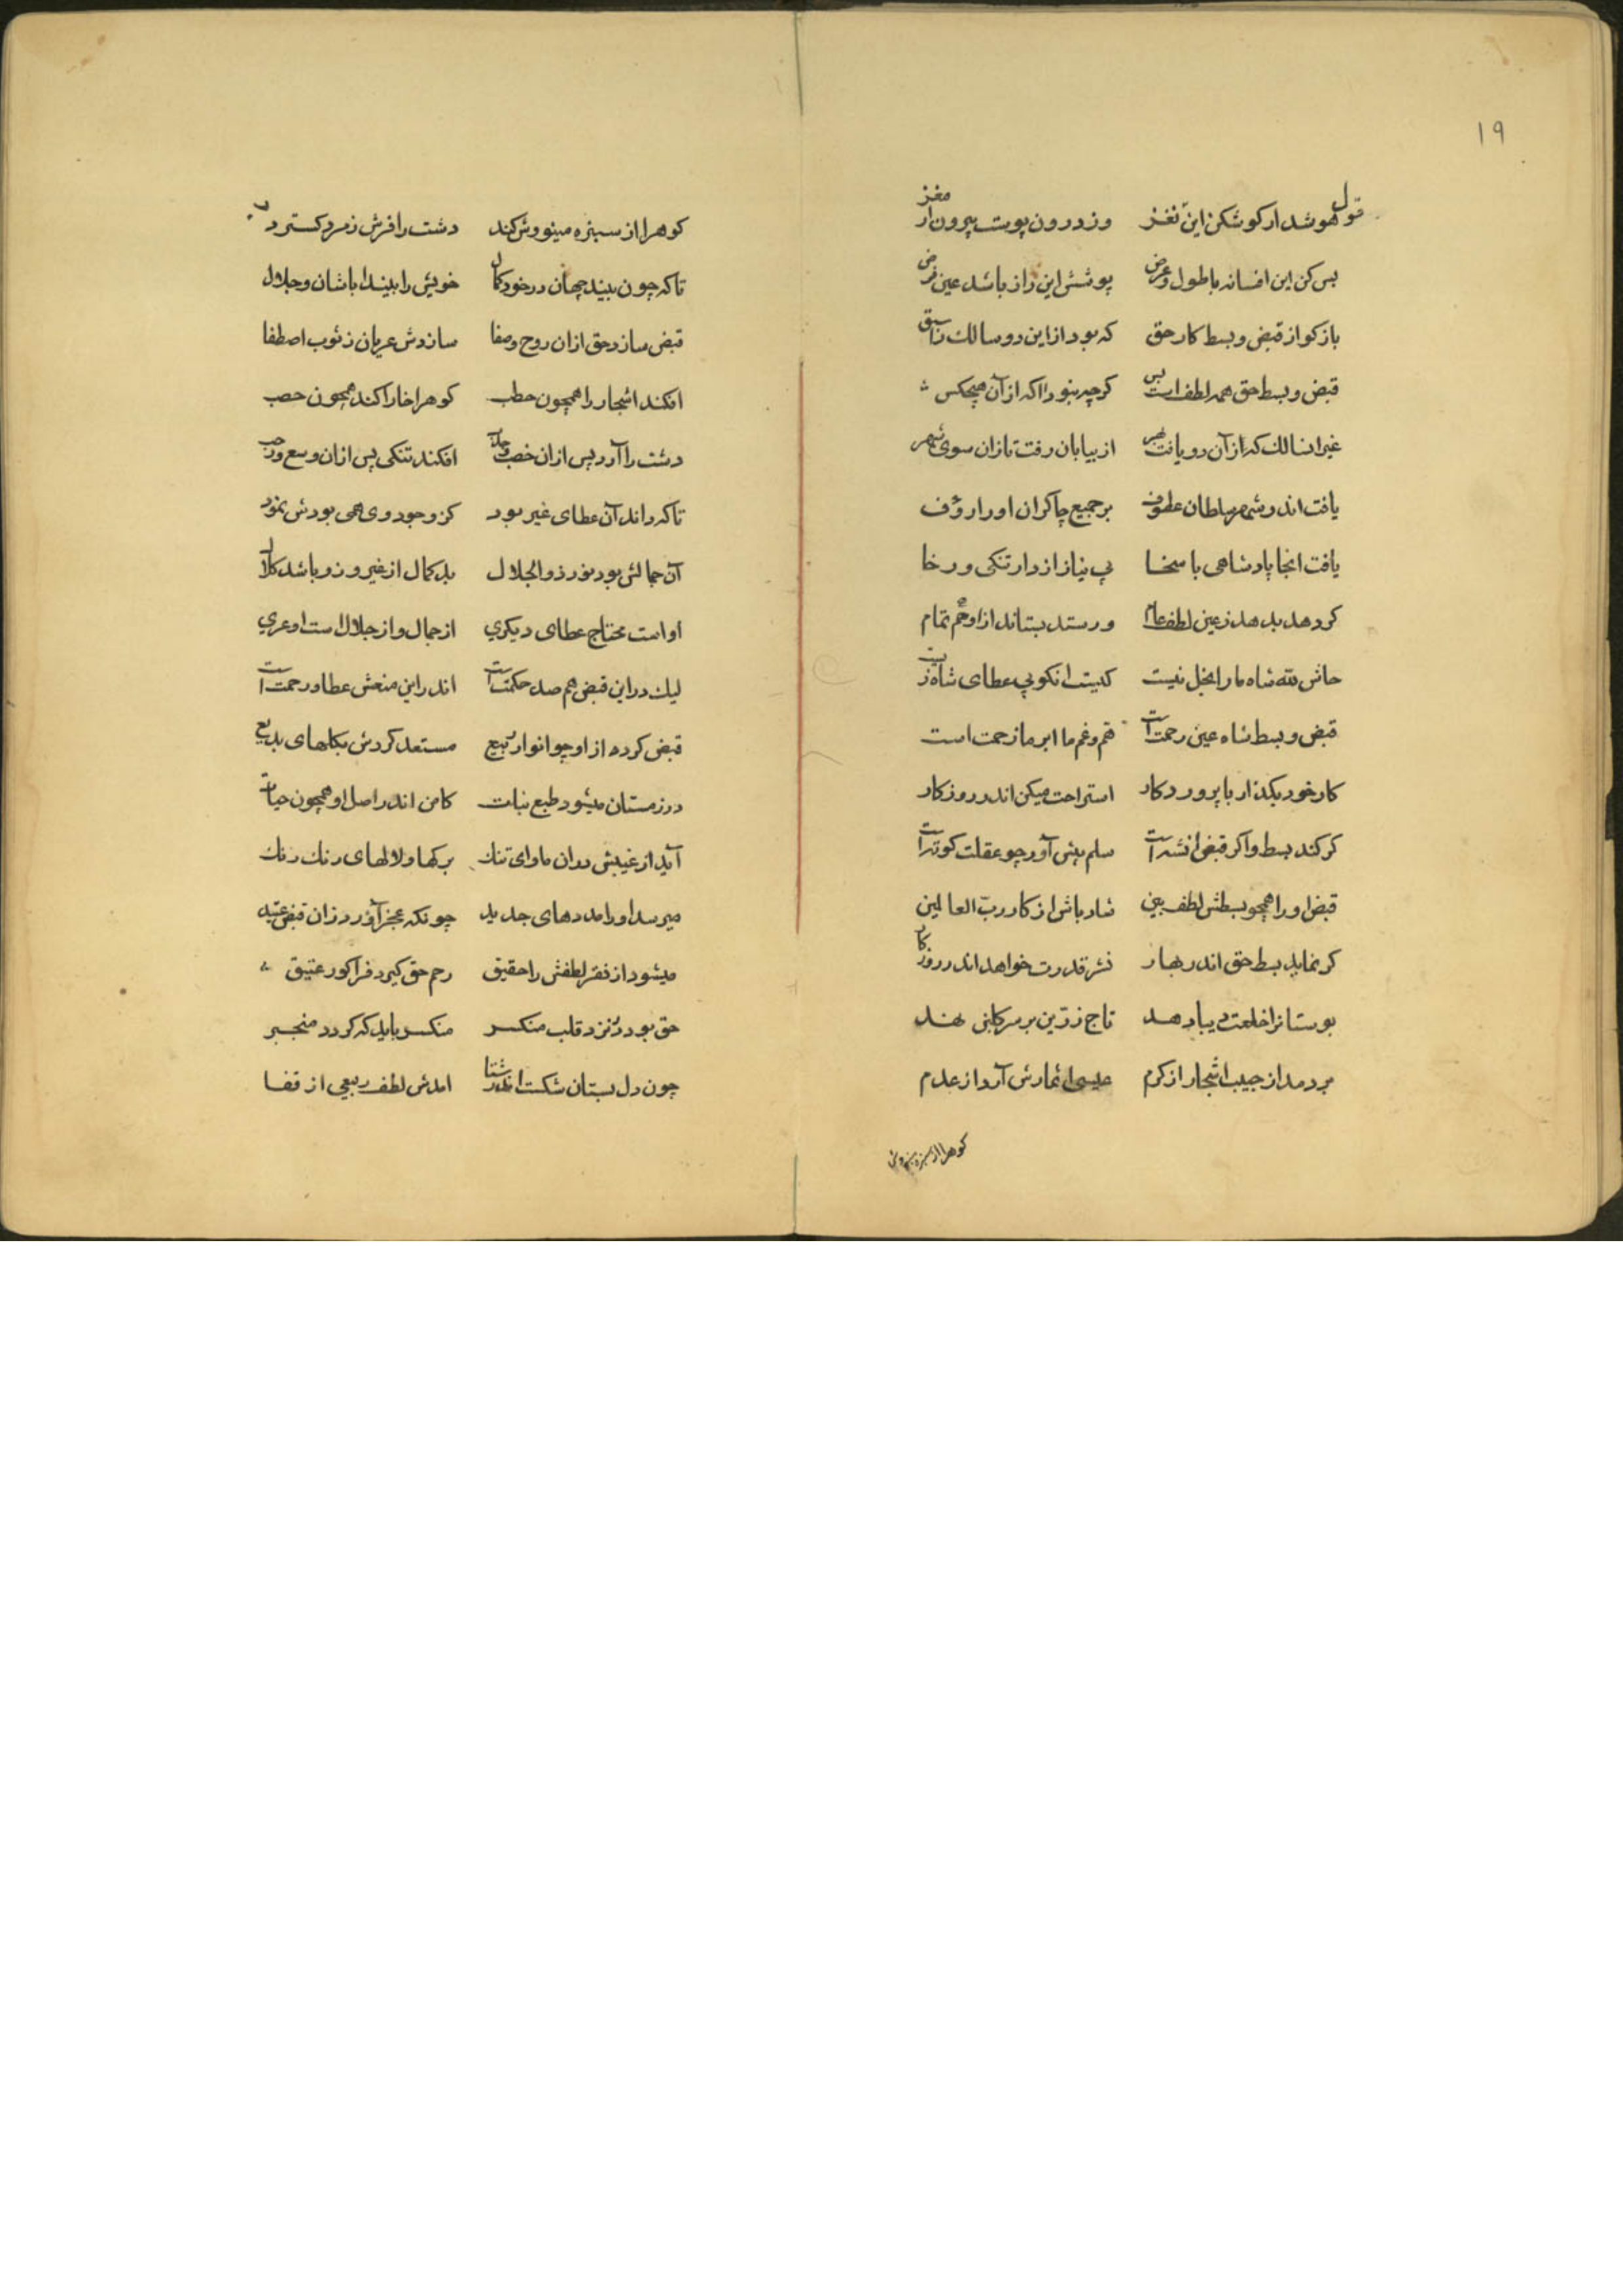 ۱۹
هوشدار کوشکن این نغز قول وز درون پوست بیرون ار مغز
بس کن این افسانه با طول و عرض پوشش این راز باشد عین فرض
باز کو از قبض و بسط کار حق که بود از این دو سالک را سبق
قبض و بسط حق همه لطف است بس کرچه نبود اکه از آن هیچکس
غیر انسالک که از آن دو یافت بهر از بیابان رفت تازان سوی شهر
یافت اندر شهر سلطان عطوف بر جمیع چاکران او را رؤف
یافت انجا پادشاهی با سخا بی نیاز از دار تنکی و رخا
کر دهد بدهد ز عین لطف عام ور ستد بستاند از او هم تمام
حاش لله شاه ما را بخل نیست کیست انکو بی عطای شاه زیست
قبض و بسط شاه عین رحمت است هم و غم ما ابر ما زحمت است
کار خود بکذار با پروردکار استراحت میکن اندر روزکار
کر کند بسط و اکر قبض انشه است سلم پیش آور چو عقلت کوته است
قبض او را همچو بسطش لطف بین شاد باش از کار رب العالمین
کر نماید بسط حق اندر بهار نشر قدرت خواهد اندر روزکار
بوستانرا خلعت دیبا دهد تاج زرین بر سر کلبن نهد
بردمد از جیب اشجار از کرم عیسی اثمارش آرد از عدم
کوهرا از سبزه مینو وش
کوهرا از سبزه مینو وش کند دشت را فرش زمرد کسترد
تا که چون بیند جهان در خود کمال خویش را بیند ابا شان و جلال
قبض سازد حق ازان روح و صفا سازدش عریان ز ثوب اصطفا
افکند اشجار را همچون حطب کوهرا خارا کند همچون حصب
دشت را آرد پس ازان خصب جدب افکند تنکی پس ازان وسع و رحب
تا که داند آن عطای غیر بود کز وجود وی همی بودش نمود
آن جمالش بود نور ذوالجلال بد کمال از غیر و زو باشد کلال
او است محتاج عطای دیکری از جمال و از جلال است او عری
لیک در این قبض هم صد حکمت است اندر این منعش عطا و رحمت است
قبض کرده از او چو انوار ربیع مستعد کردش بکلهای بدیع
در زمستان میشود طبع نبات کامن اندر اصل او همچون حیات
آید از غیبش دران ماوای تنک برکها و لالهای رنک رنک
میرسد او را مددهای جدید چونکه عجز آورد زان قبض عتید
میشود از فقر لطفش را حقیق رحم حق کیرد فرا کور عتیق
حق بود در نزد قلب منکسر منکسر باید که کردد منجبر
چون دل بستان شکست اندر شتا امدش لطف ربیعی از قفا